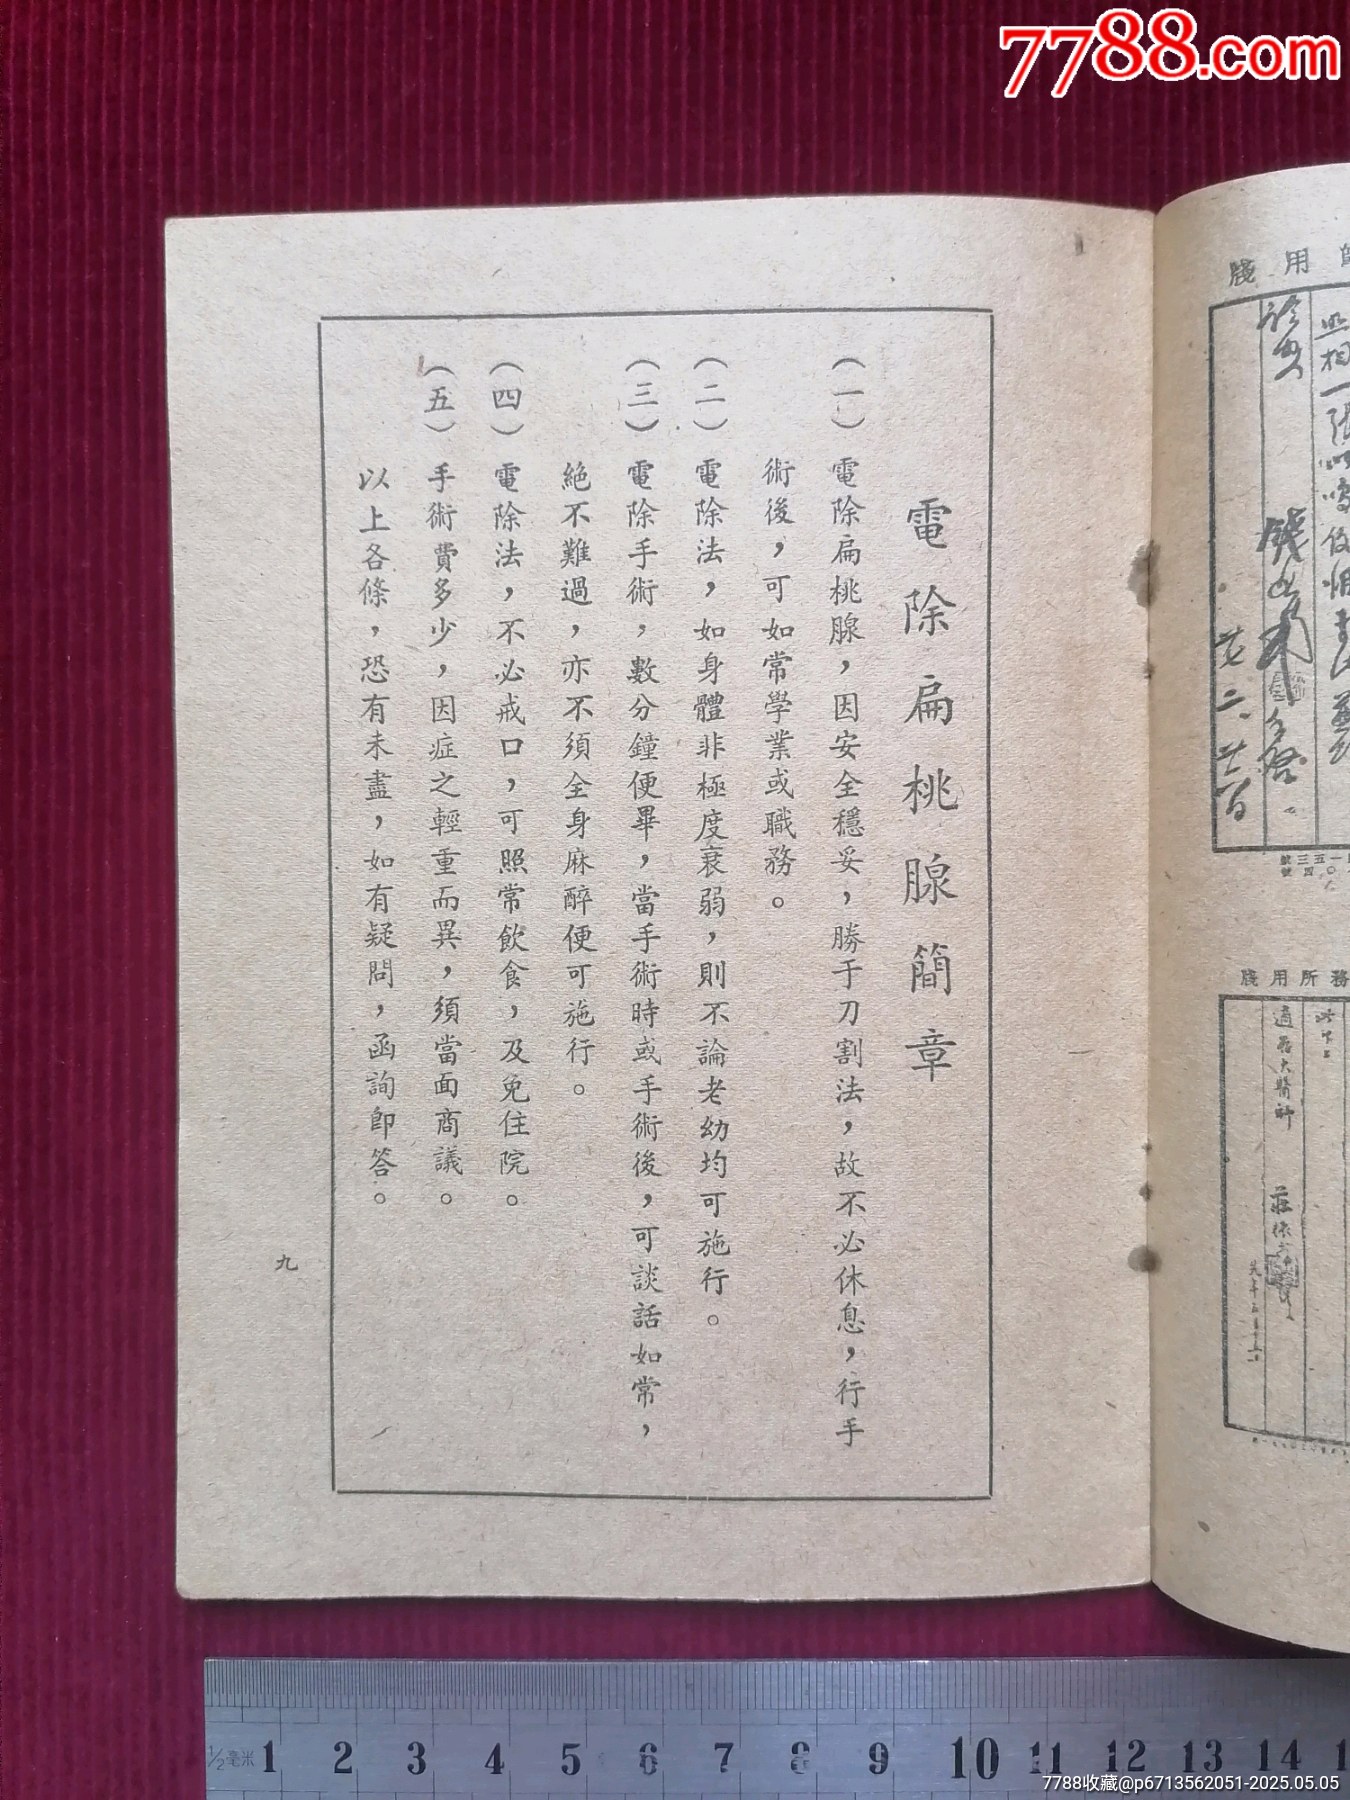 7788.com
電除扁桃腺簡章
(一) 電除扁桃腺，因安全穩妥，勝于刀割法，故不必休息，行手
術後，可如常學業或職務。
(二) 電除法，如身體非極度衰弱，則不論老幼均可施行。
(三) 電除手術，數分鐘便畢，當手術時或手術後，可談話如常，
絕不難過，亦不須全身麻醉便可施行。
(四) 電除法，不必戒口，可照常飲食，及免住院。
(五) 手術費多少，因症之輕重而異，須當面商議。
以上各條，恐有未盡，如有疑問，函詢即答。
九
用牋
務所用牋
1/2毫米 1 2 3 4 5 6 7 8 9 10 11 12 13 14
7788收藏@p6713562051-2025.05.05